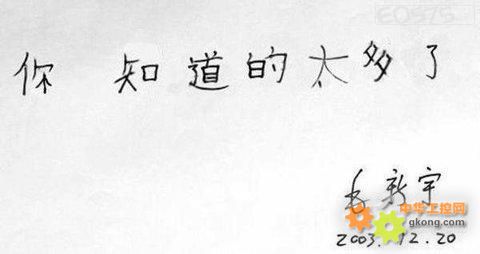 EOS75
你知道的太多了
毛新宇
中华工控网
gkong.com
2003.12.20